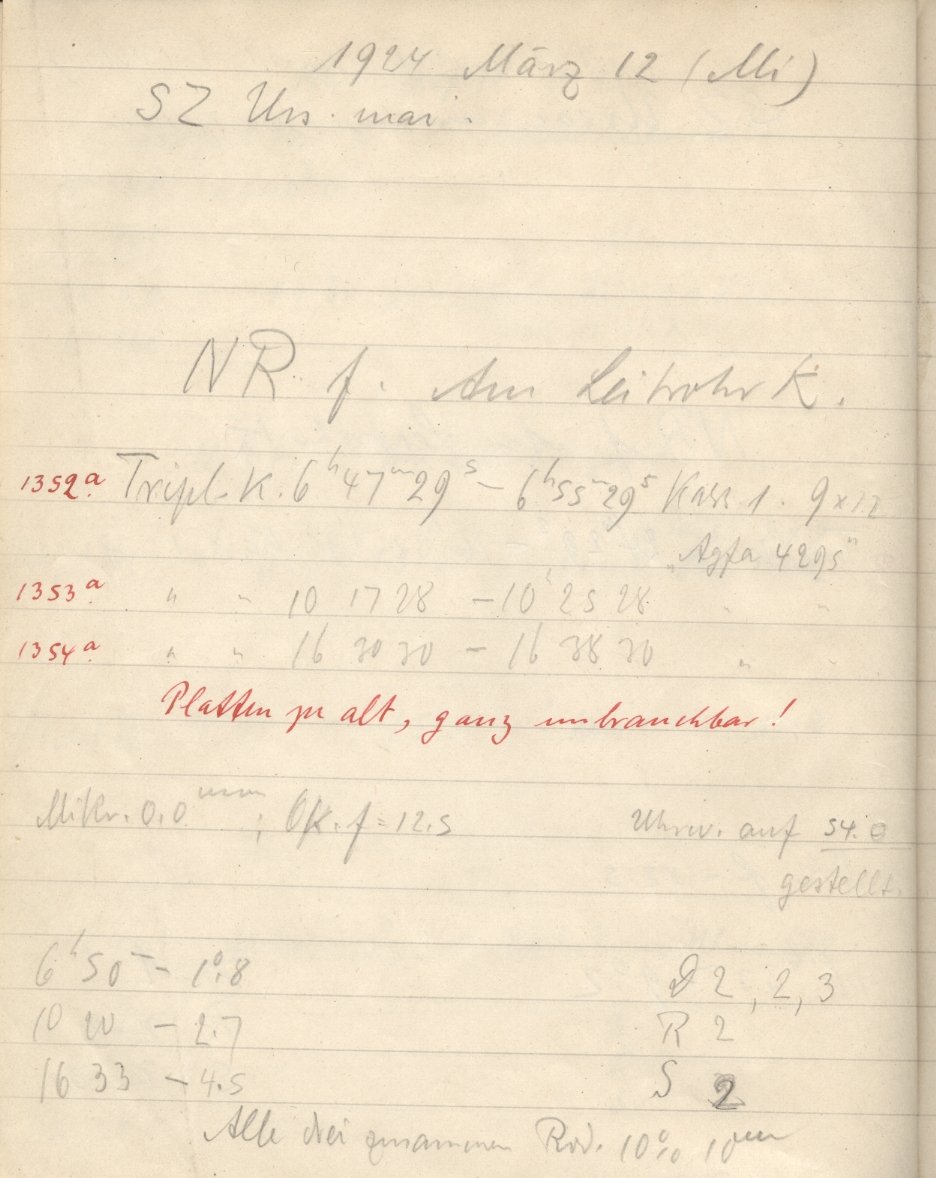 1924 März 12 (Mi)
SZ Urs. mai.
NR f. Am Leitrohr K.
1352a Tripl. K. 6h 47m 29s – 6h 55m 29s Kass 1. 9x12
"Agfa 4295"
1353a " " 10 17 28 – 10 25 28 " "
1354a " " 16 30 30 – 16 38 30 " "
Platten zu alt, ganz unbrauchbar!
Mikr. 0.0mm ; Ok. f = 12.5 Uhrw. auf 54.0
gestellt.
6h 50m – 1°.8 D 2, 2, 3
10 20 – 2.7 R 2
16 33 – 4.5 S 2
Alle drei zusammen Rod. 10% 10min